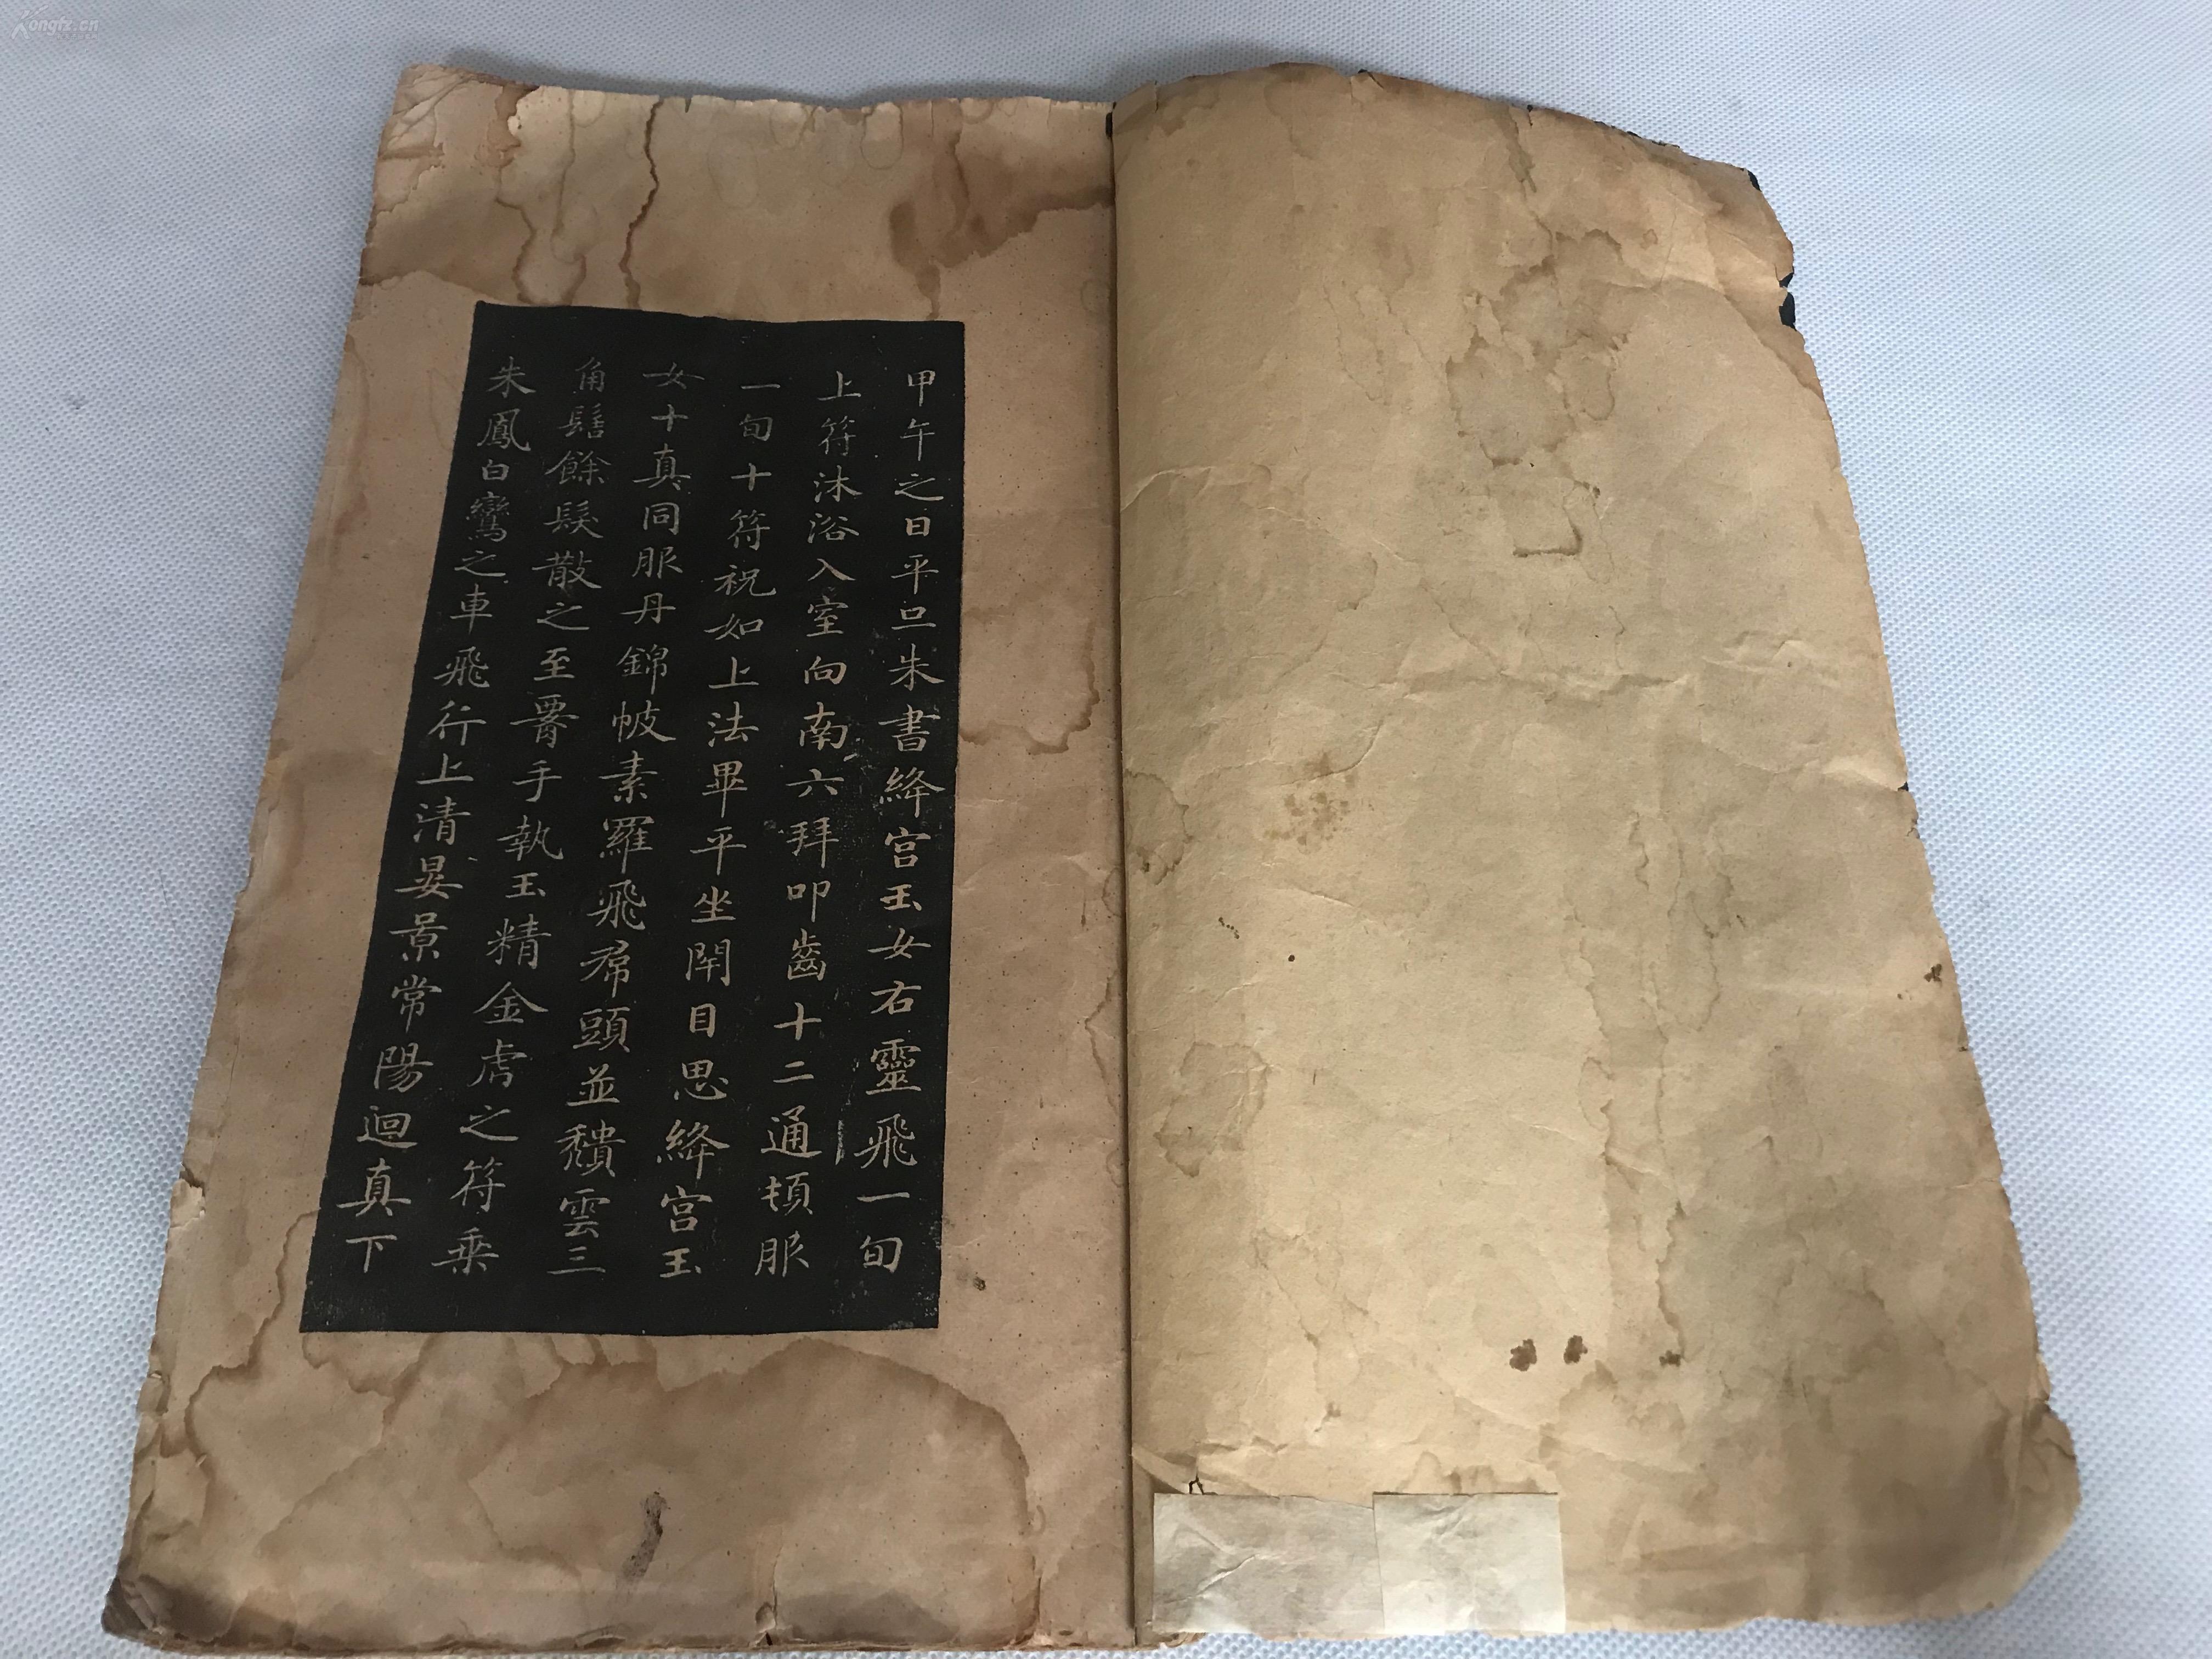 甲午之日平旦朱書絳宮玉女右靈飛一旬
上符沐浴入室向南六拜叩齒十二通頓服
一旬十符祝如上法畢平坐閇目思絳宮玉
女十真同服丹錦帔素羅飛帬頭並頹雲三
角髻餘髮散之至署手執玉精金虎之符乘
朱鳳白鸞之車飛行上清晏景常陽迴真下
Kongfz.cn